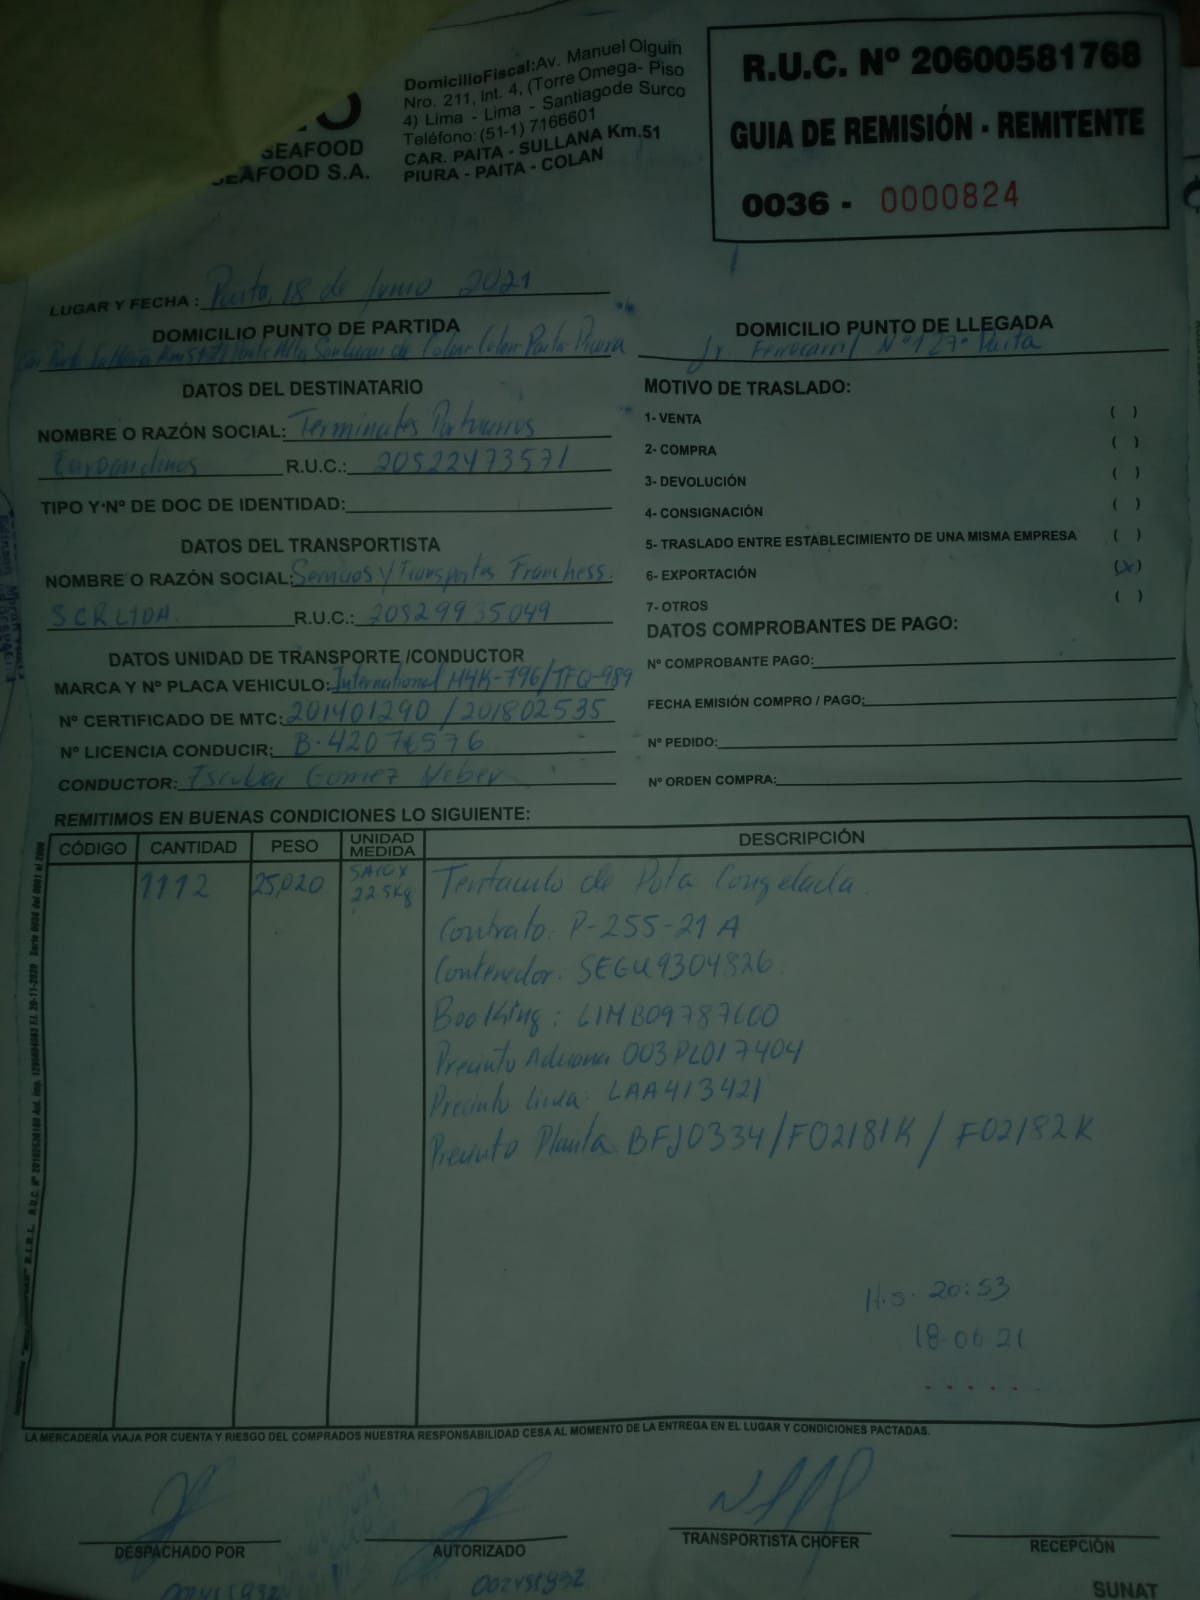 SEAFOOD
SEAFOOD S.A.
DomicilioFiscal:Av. Manuel Olguin
Nro. 211, Int. 4, (Torre Omega- Piso
4) Lima - Lima - Santiagode Surco
Teléfono: (51-1) 7166601
CAR. PAITA - SULLANA Km.51
PIURA - PAITA - COLAN
R.U.C. Nº 20600581768
GUIA DE REMISIÓN - REMITENTE
0036 - 0000824
LUGAR Y FECHA : Paita, 18 de Junio 2021
DOMICILIO PUNTO DE PARTIDA
Colan Paita Piura
DOMICILIO PUNTO DE LLEGADA
Jr. Ferrocarril Nº 127 Paita
DATOS DEL DESTINATARIO
NOMBRE O RAZÓN SOCIAL: Terminales Portuarios
Euroandinos R.U.C.: 20522473571
TIPO Y Nº DE DOC DE IDENTIDAD:
DATOS DEL TRANSPORTISTA
NOMBRE O RAZÓN SOCIAL: Servicios y Transportes Franchess
SCRLTDA. R.U.C.: 20529935049
DATOS UNIDAD DE TRANSPORTE /CONDUCTOR
MARCA Y Nº PLACA VEHICULO: International M4K-796/TFQ-989
Nº CERTIFICADO DE MTC: 201401290 / 201802535
Nº LICENCIA CONDUCIR: B-42076576
CONDUCTOR: Escobar Gomez Neber
MOTIVO DE TRASLADO:
1- VENTA ( )
2- COMPRA ( )
3- DEVOLUCIÓN ( )
4- CONSIGNACIÓN ( )
5- TRASLADO ENTRE ESTABLECIMIENTO DE UNA MISMA EMPRESA ( )
6- EXPORTACIÓN (x)
7- OTROS ( )
DATOS COMPROBANTES DE PAGO:
Nº COMPROBANTE PAGO:
FECHA EMISIÓN COMPRO / PAGO:
Nº PEDIDO:
Nº ORDEN COMPRA:
REMITIMOS EN BUENAS CONDICIONES LO SIGUIENTE:
CÓDIGO CANTIDAD PESO UNIDAD MEDIDA DESCRIPCIÓN
1112 25,020 SACO X 22.5Kg Tentaculo de Pota Congelada.
Contrato: P-255-21A
Contenedor: SEGU9304826
Booking: LIMB09787600
Precinto Aduana 003PL017404
Precinto linea: LAA413421
Precinto Planta BFJ0334/F02181K / F02182K
H.S. 20:53
18-06-21
LA MERCADERÍA VIAJA POR CUENTA Y RIESGO DEL COMPRADOS NUESTRA RESPONSABILIDAD CESA AL MOMENTO DE LA ENTREGA EN EL LUGAR Y CONDICIONES PACTADAS.
DESPACHADO POR
AUTORIZADO
TRANSPORTISTA CHOFER
RECEPCIÓN
SUNAT